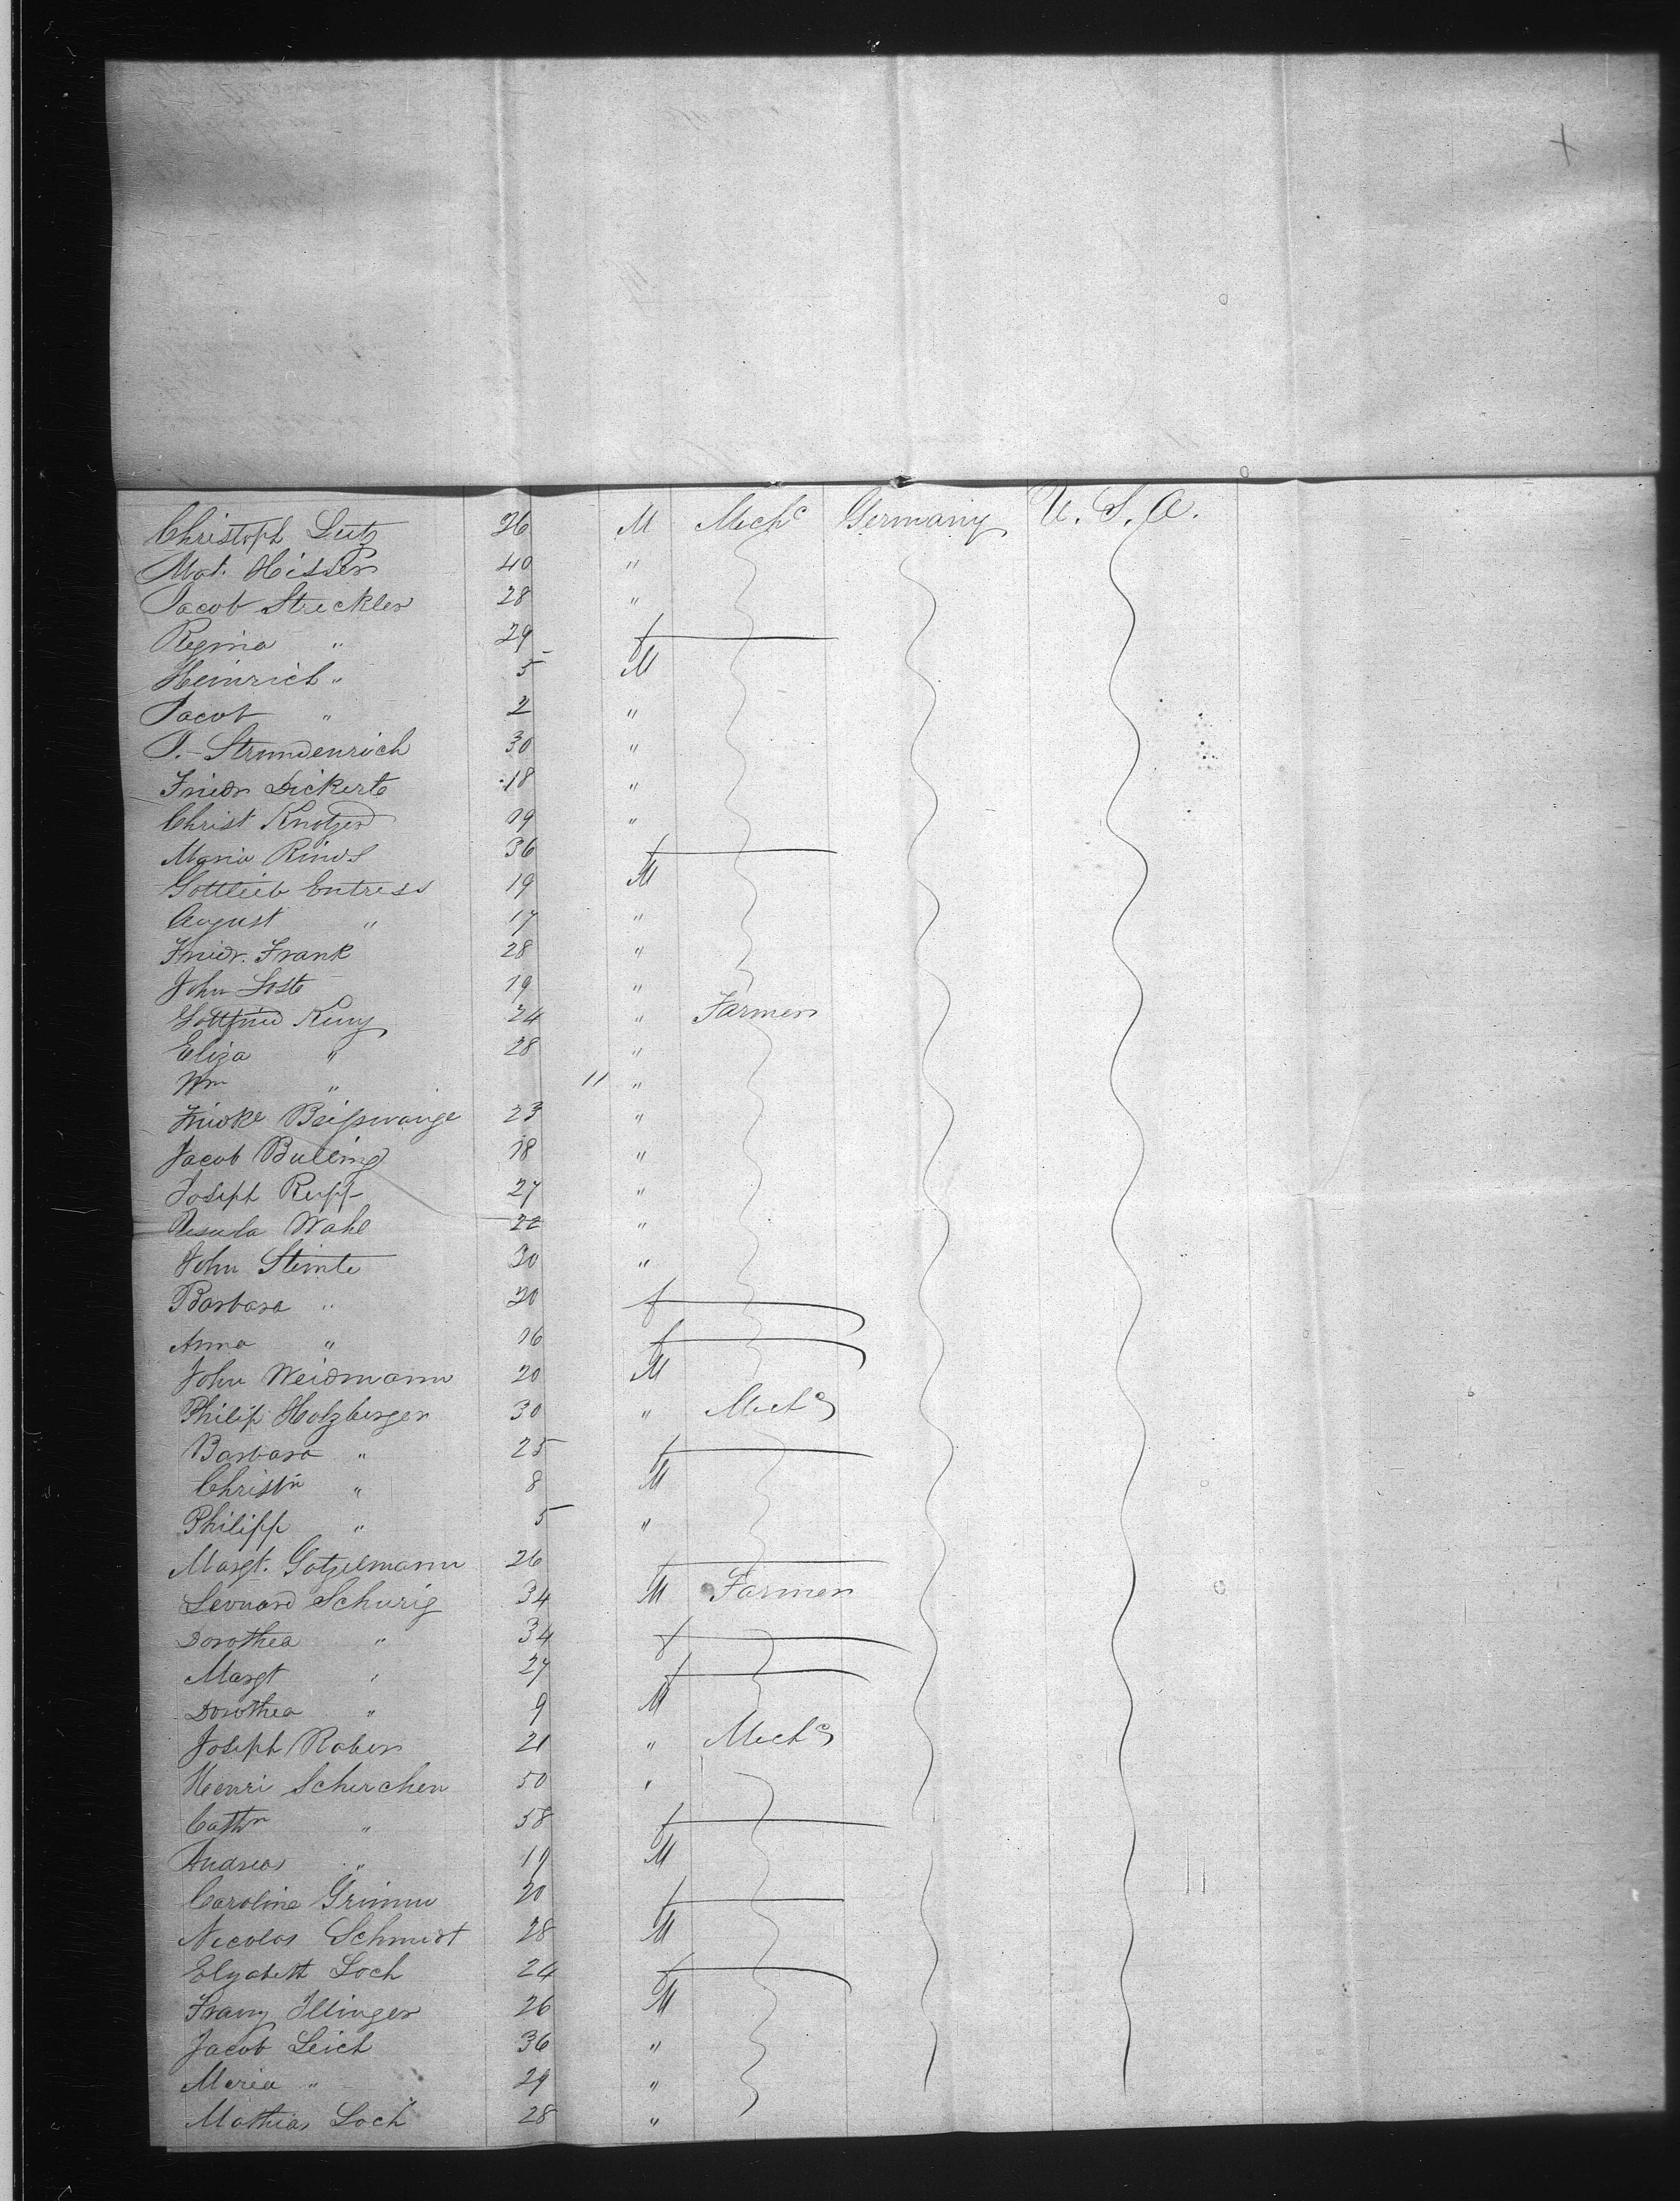 Christoph Lutz 26 M Mechc Germany U. S. A.
Mat. Hisser 40 "
Jacob Streckler 28 "
Regina " 29 f
Heinrich " 5 M
Jacob " 2 "
J. 30 "
Friedr Dickerte 18 "
Christ Knotzer 19 "
Maria 36 f
Gottlieb Entress 19 M
August " 17 "
Friedr. Frank 28 "
John 19 "
Gottfried 24 " Farmer
Eliza " 28 "
Wm " 11 "
23 "
Jacob 18 "
Joseph Rupp 27 "
Ursula Wahl 22 "
John Steinle 30 "
Barbara " 20 f
Anna " 16 f
John Weidmann 20 M
Philip Holzberger 30 " Mechc
Barbara " 25 f
Christn " 8 M
Philipp " 5 "
Margt. Gotzelmann 26 f
Leonard Schurig 34 M Farmer
Dorothea " 34 f
Margt " 27 f
Dorothea " 9 M
Joseph Raber 21 " Mechc
Henri Schirchen 50 "
Cathr " 58 f
Andreas " 19 M
Caroline Grimm 20 f
Nicolas Schmidt 28 M
Elyabeth Loch 24 f
Franz Illinger 26 M
Jacob Leich 36 "
Maria " 29 "
Mathias Loch 28 "